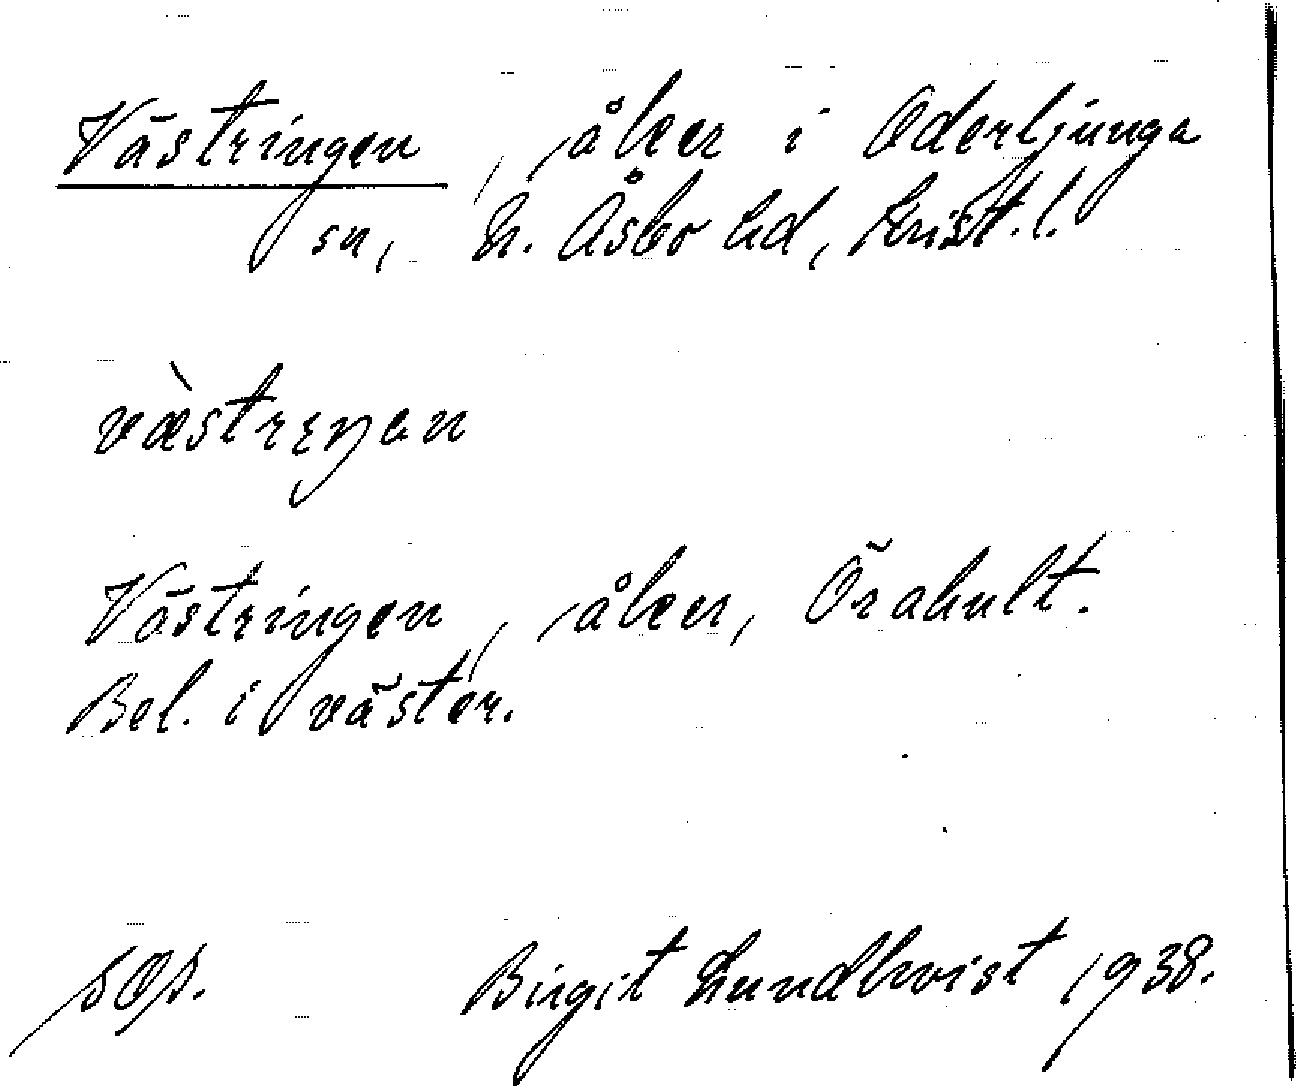 Västringen, åker i Oderljunga
sn, N. Åsbo hd, Krist. l.
væ̀strɩŋan
Västringen, åker, Örahult.
Bel. i väster.
Birgit Lundkvist 1938.